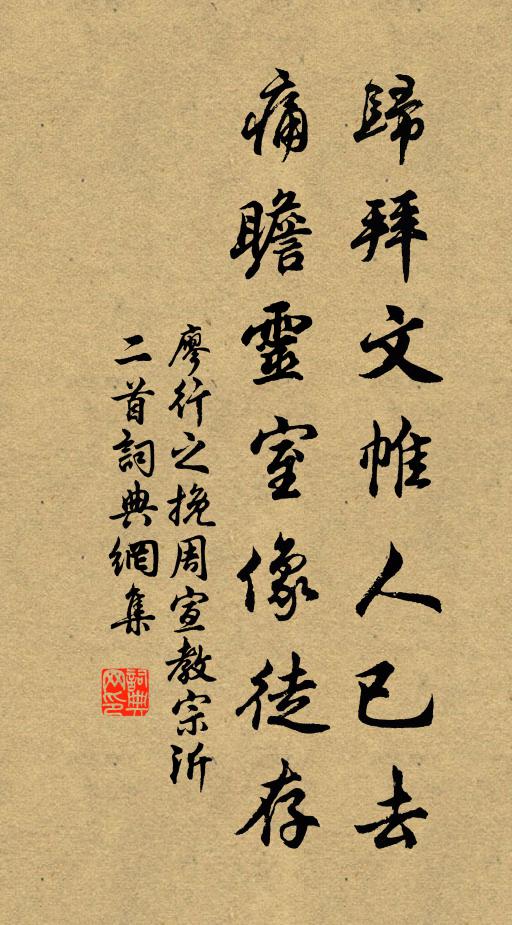 歸拜文帷人已去
痛瞻靈室像徒存
廖行之挽周宣教宗沂
二首詞典網集
詞典
网印